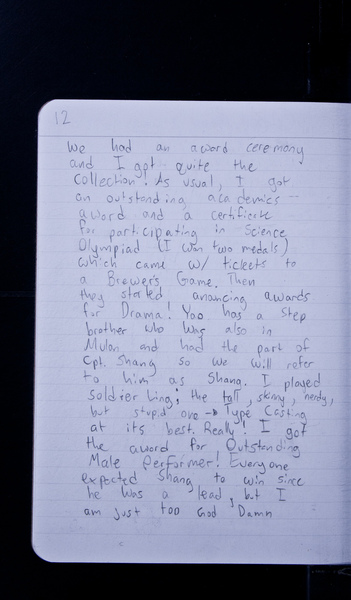 12
We had an award ceremony
and I got quite the
collection! As usual, I got
an outstanding academics
award and a certificate
for participating in Science
Olympiad (I won two medals)
which came w/ tickets to
a Brewer's Game. Then
they started anouncing awards
for Drama! Yao has a step
brother who was also in
Mulan and had the part of
Cpt. Shang so we will refer
to him as Shang. I played
soldier Ling; the tall, skinny, nerdy,
but stupid one → Type Casting
at its best. Really! I got
the award for Outstanding
Male Performer! Everyone
expected Shang to win since
he was a lead, but I
am just too God Damn